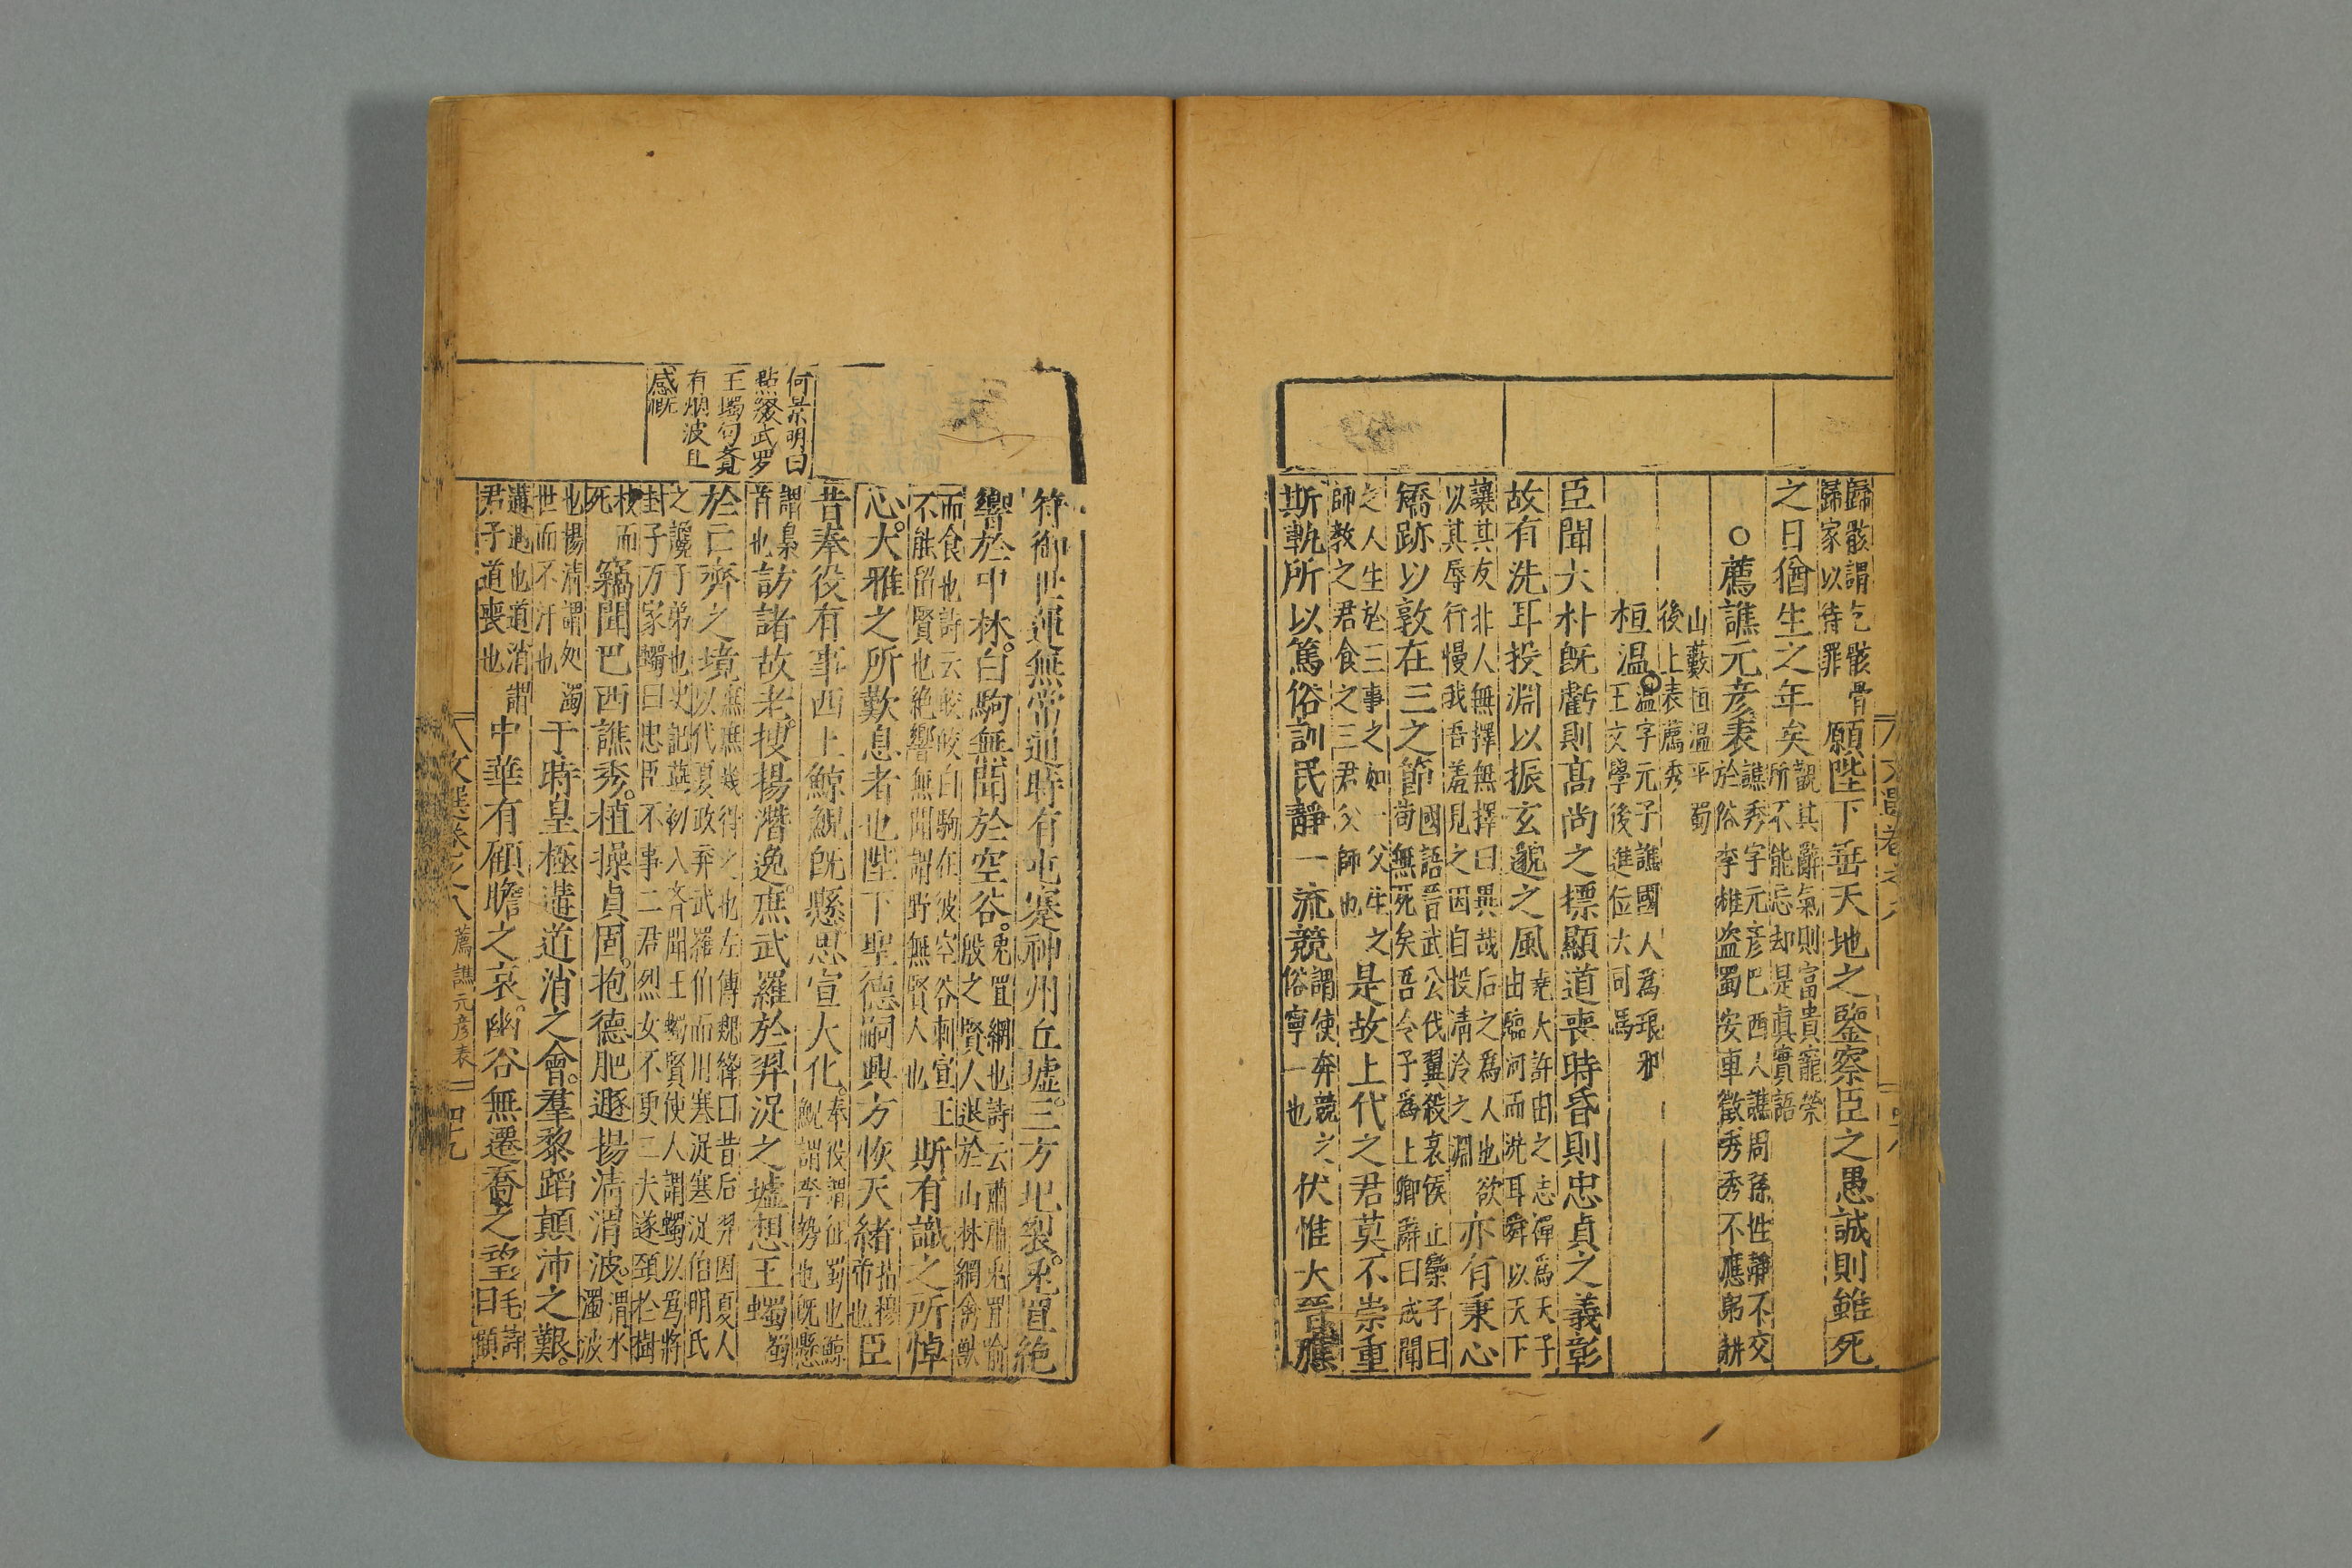 歸骸謂乞骸骨
歸家以待罪
願陛下垂天地之鑒察臣之愚誠則雖死
之日猶生之年矣
觀其辭氣則富貴寵榮
所不能忘却是真實語
○薦譙元彥表
譙秀字元彥巴西人譙周孫性靜不交
於俗李雄盗蜀安車徵秀秀不應躬耕
山藪桓温平蜀
後上表薦秀
桓温
温字元子譙國人為琅邪
王文學後進位大司馬
臣聞大朴旣虧則髙尚之標顯道喪時昏則忠貞之義彰
故有洗耳投淵以振玄邈之風
堯大許由之志禪為天子
由臨河而洗耳舜以天下
讓其友非人無擇無擇曰異哉后之為人也欲
以其辱行慢我吾羞見之因自投淸泠之淵
亦有秉心
矯跡以敦在三之節
國語晉武公伐翼殺哀侯止欒子曰
苟無死矣吾令子爲上卿辭曰成聞
之人生於三事之如一父生之
師教之君食之三君父師也
是故上代之君莫不崇重
斯軌所以篤俗訓民靜一流競
謂使奔競之
俗寧一也
伏惟大晉應
文選卷之八
何景明曰
點綴武罗
王蠋句覺
有烟波且
感慨
符御世運無常通時有屯蹇神州丘墟三方圯裂兎罝絶
響於中林白駒無聞於空谷
兎罝網也詩云肅肅兎罝喻
殷之賢人退於山林網禽獸
而食也詩云皎皎白駒在彼空谷刺宣王
不能留賢也絶響無聞謂野無賢人也
斯有識之所悼
心大雅之所歎息者也陛下聖德嗣興方恢天緒
指穆
帝也
臣
昔奉役有事西土鯨鯢旣懸思宣大化
奉役謂征蜀也鯨
鯢謂李勢也旣懸
謂梟
首也
訪諸故老搜揚潛逸庶武羅於羿浞之墟想王蠋
蜀
於亡齊之境
無庶幾得之也左傳魏絳曰昔后羿因夏人
以代夏政弃武羅伯而用寒浞寒浞伯明氏
之讒子弟也史記燕初入齊聞王蠋賢使人謂蠋以爲將
封子万家蠋曰忠臣不事二君烈女不更二夫遂頚於樹
枝而
死
竊聞巴西譙秀植操貞固抱德肥遯揚淸渭波
渭水
濁波
也揚淸謂処濁
世而不汙也
于時皇極遘道消之會羣黎蹈顛沛之艱
遘遇也道消謂
君子道喪也
中華有顧瞻之哀幽谷無遷喬之望
毛詩
曰顧
文選卷之八 薦譙元彥表 四九